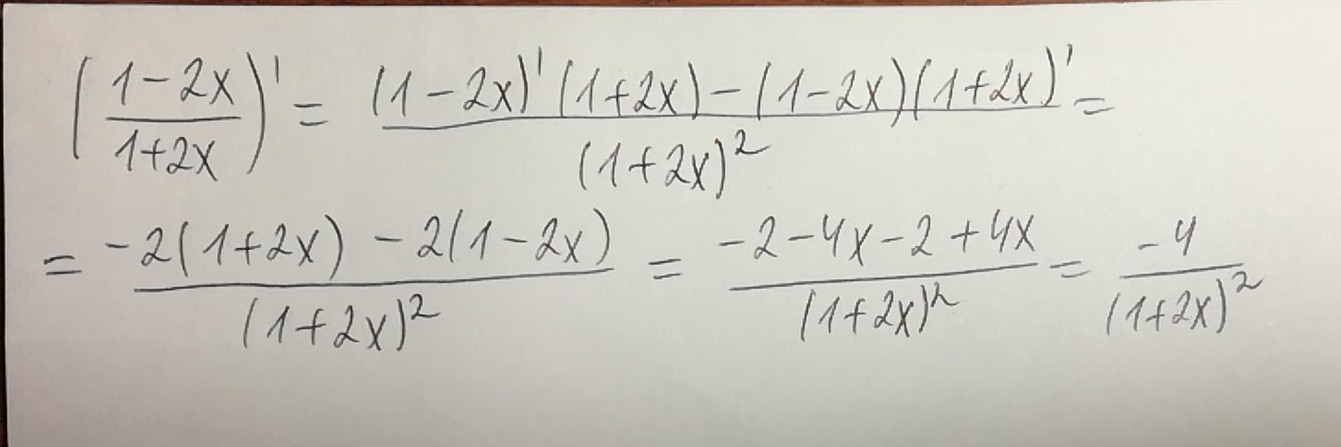 ((1-2x)/(1+2x))' = ((1-2x)'(1+2x)-(1-2x)(1+2x)')/(1+2x)² =
= (-2(1+2x)-2(1-2x))/(1+2x)² = (-2-4x-2+4x)/(1+2x)² = -4/(1+2x)²